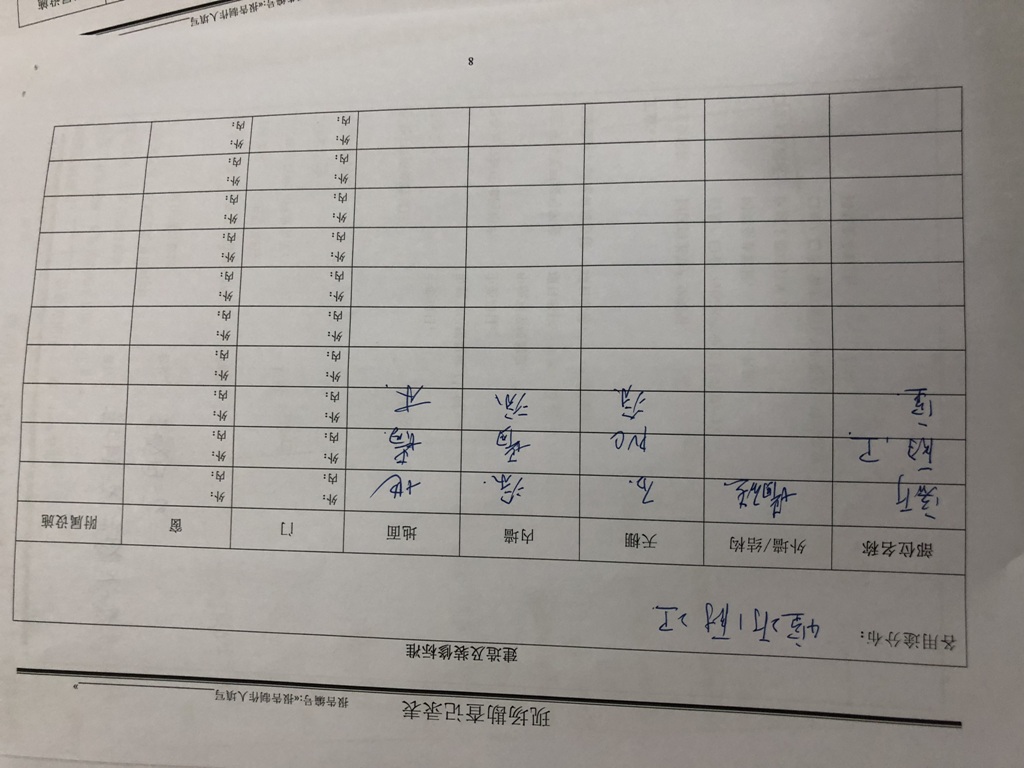 现场勘查记录表
报告编号:«报告制作人填写 »
建造及装修标准
各用途分布： 4室2厅1厨2卫
部位名称 外墙/结构 天棚 内墙 地面 门 窗 附属设施
客厅 石 涂 地 外: 内: 外: 内:
厨、卫 PVC 墙砖 地砖 外: 内: 外: 内:
室 涂 涂 木 外: 内: 外: 内:
外: 内: 外: 内:
外: 内: 外: 内:
外: 内: 外: 内:
外: 内: 外: 内:
外: 内: 外: 内:
外: 内: 外: 内:
外: 内: 外: 内:
8
告编号:«报告制作人填写